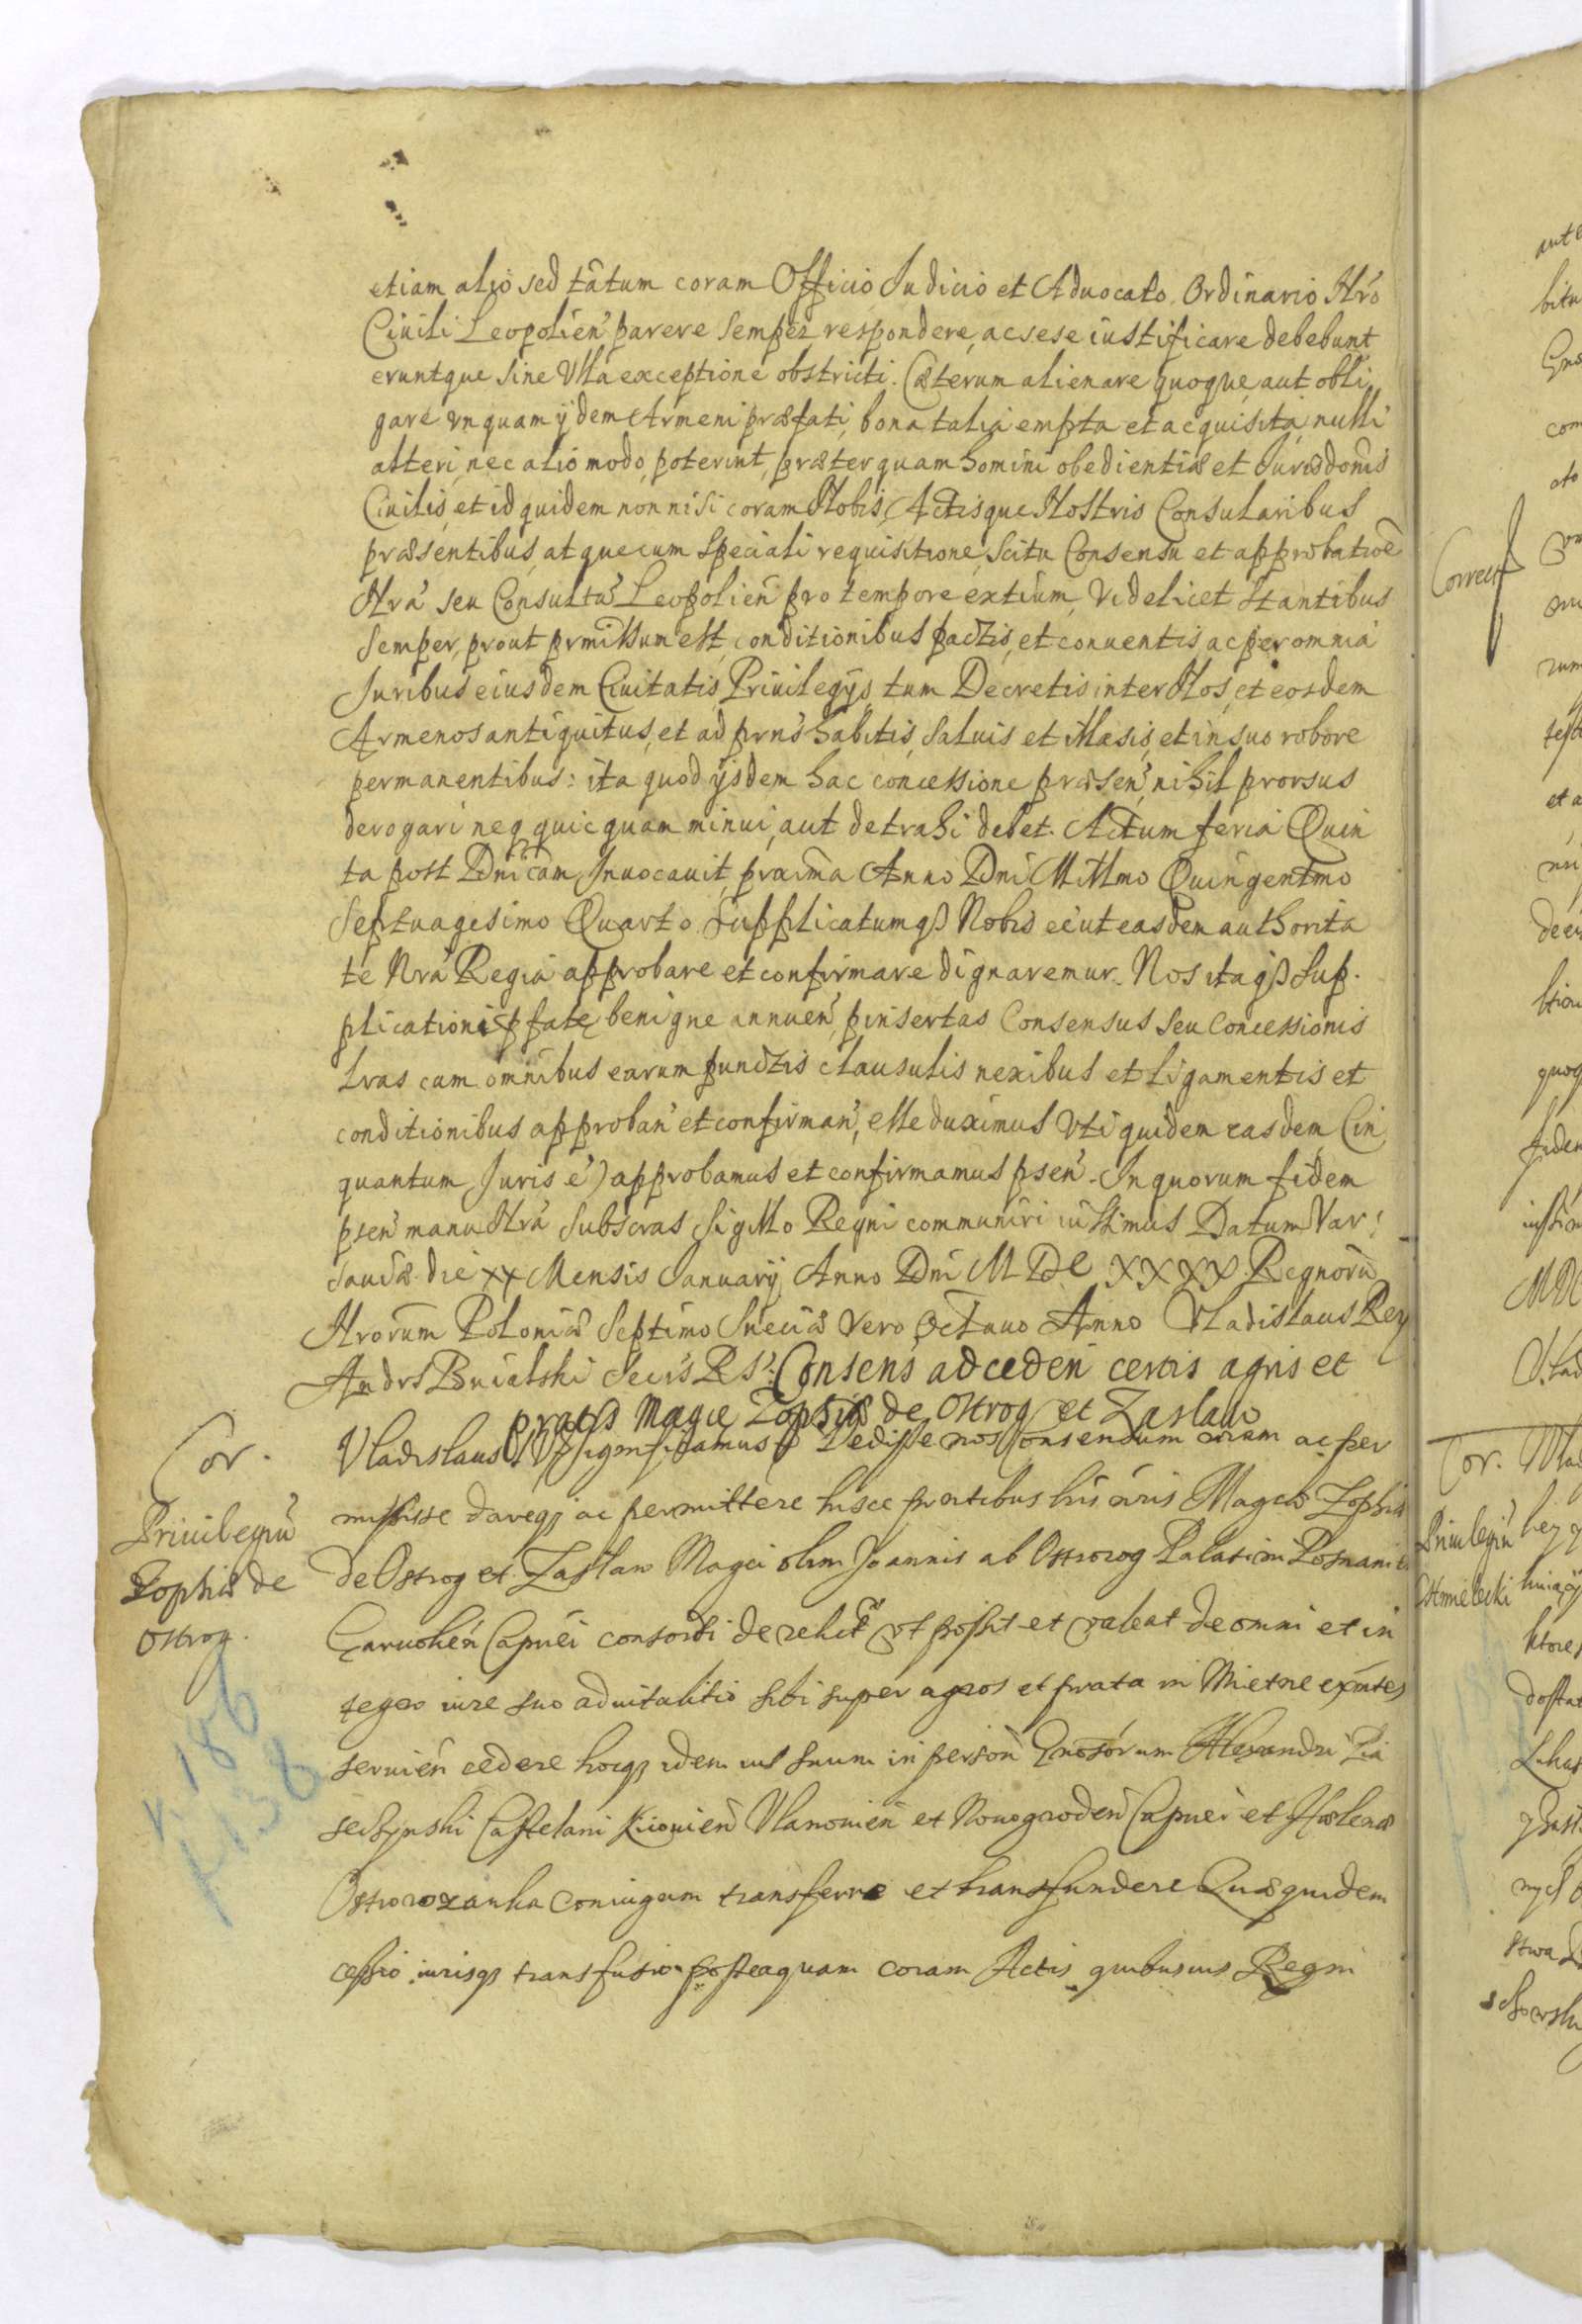 etiam alio sed tãtum coram Officio Iudicio et Aduocato Ordinario Nro
Ciuili Leopolien' parere semper respondere, ac sese iustificare debebunt
eruntque sine Vlla exceptione obstricti. Cæterum alienare quoque, aut obli
gare vnquam ijdem Armeni præfati, bona talia empta et acquisita, nulli
alteri, nec alio modo, poterint, præterquam homini obedientiæ et Iurisdonis
Ciuilis, et id quidem non nisi coram Nobis, Actisque Nostris Consularibus
præsentibus, atque cum speciali requisitione, Scitu Consensu et approbatioẽ
Nra' seu Consultu' Leopolien' pro tempore extium, Videlicet Stantibus
semper, prout prmissum est, conditionibus pactis, et conuentis ac per omnia
Iuribus eiusdem Ciuitatis, Priuilegijs, tum Decretis inter Nos, et eosdem
Armenos antiquitus, et ad prns habitis, saluis et illæsis, et in suo robore
permanentibus: ita quod ijsdem hac concessione præsen' nihil prorsus
derogari neq quicquam minui, aut detrahi debet. Actum feria Quin
ta post Dnicam Inuocauit, proxima Anno Dni Millmo Quingentmo
Septuagesimo Quarto. Supplicatumq3 Nobis eē ut easdem authorita
te Nra' Regia approbare et confirmare dignaremur. Nos itaq3 Sup.
plicationi pfatę benigne annuen', pinsertas Consensus seu Concessionis
Lras cum omnibus earum punctis clausulis nexibus et ligamentis et
conditionibus approban' et confirman', esse duximus Vti quidem easdem (in
quantum Iuris é) approbamus et confirmamus psen'. In quorum fidem
psen' manu Nra' Subscras Sigillo Regni communiri iussimus Datum Var:
sauiæ die XX Mensis Ianuarij Anno Dni MDCXXXX. Regnorũ
Nrorum Poloniæ Septimo Sueciæ vero Octauo Anno Vladislaus Rex
Consens ad ceden certis agris et
pratis Magcæ Zophiæ de Ostrog et Zaslaw
Cor.
Priuilegiũ
Zophiæ de
Ostrog.
Vladislaus IV significamus Dedisse nos Consensum ac per
misisse dareq3 ac permittere hisce prntibus lris nris Magcæ Zophiæ
de Ostrog et Zaslaw Magci olim Joannis ab Ostrorog Palatini Posnanie
Capnei consorti derelictæ vt possit et valeat de omni et in
tegro iure suo aduitalitio sibi super agros et prata in Mietne exnntes
seruien cedere hocq3 idem ius suum in person Gnosorum Alexandri Pia
seczynski Castelani Kiiouien Vlanouien et Nouogroden Capnei et Helenæ
Ostrorozanka coniugum transferre et transfundere Quæquidem
cessio iurisq3 transfusio posteaquam coram Actis quibusuis Regni
Correct
Cor.
Priuilegiũ
Chmielecki